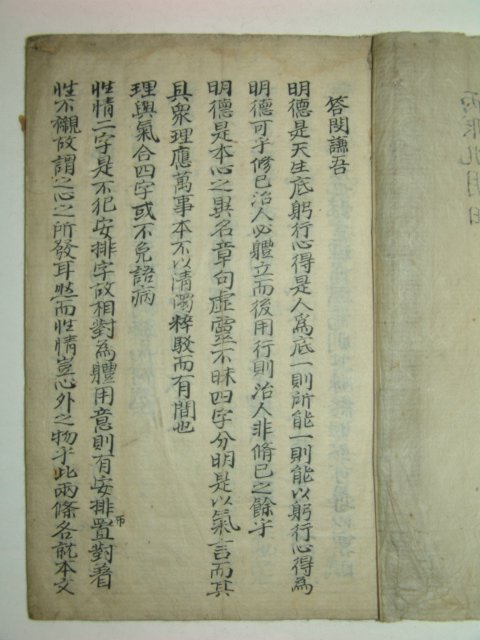 答閔謙吾
明德是天生底躬行心得是人爲底一則所能一則能以躬行心得爲
明德可乎修已治人必軆立而後用行則治人非脩已之餘乎
明德是本心之異名章句虛靈不昧四字分明是以氣言而其
具衆理應萬事本不以淸濁粹駁而有間也
理與氣合四字或不免語病
性情二字是不犯安排字故相對為軆用意則有安排置對着
性不襯故謂之心之所發耳然而性情豈心外之物乎此兩條各就本文